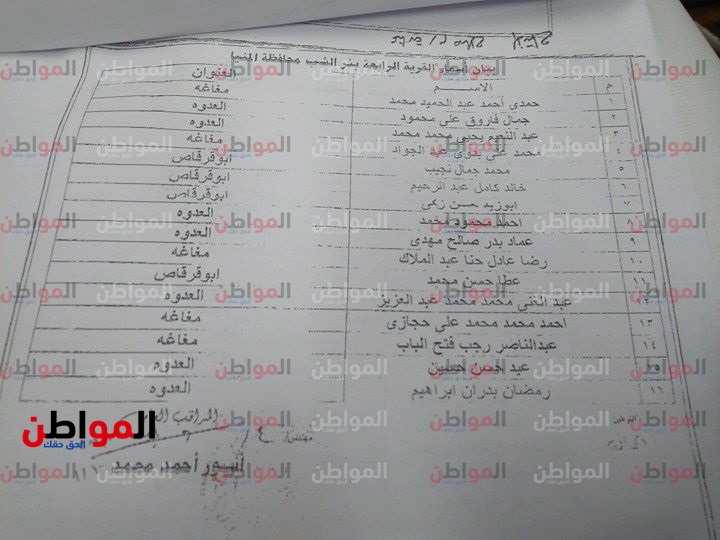 بيان أسماء القرية الرابعة بئر الشب محافظة المنيا
م الاســـم العنوان
١ حمدى احمد عبد الحميد محمد مغاغه
٢ جمال فاروق على محمود العدوه
٣ عبد النعيم يحيى محمد محمد العدوه
٤ محمد على بدوى عبد الجواد مغاغه
٥ محمد جمال نجيب ابوقرقاص
٦ خالد كامل عبد الرحيم ابوقرقاص
٧ ابوزيد حسن زكى ابوقرقاص
٨ احمد محمود محمد العدوه
٩ عماد بدر صالح مهدى العدوه
١٠ رضا عادل حنا عبد الملاك مغاغه
١١ عطا حسن محمد ابوقرقاص
١٢ عبد الغنى محمد محمد عبد العزيز العدوه
١٣ احمد محمد محمد على حجازى مغاغه
١٤ عبدالناصر رجب فتح الباب مغاغه
١٥ عيد حسن حسين العدوه
١٦ رمضان بدران ابراهيم العدوه
المراقب
مهندس /
أحمد محمد
المواطن
الحق حقك